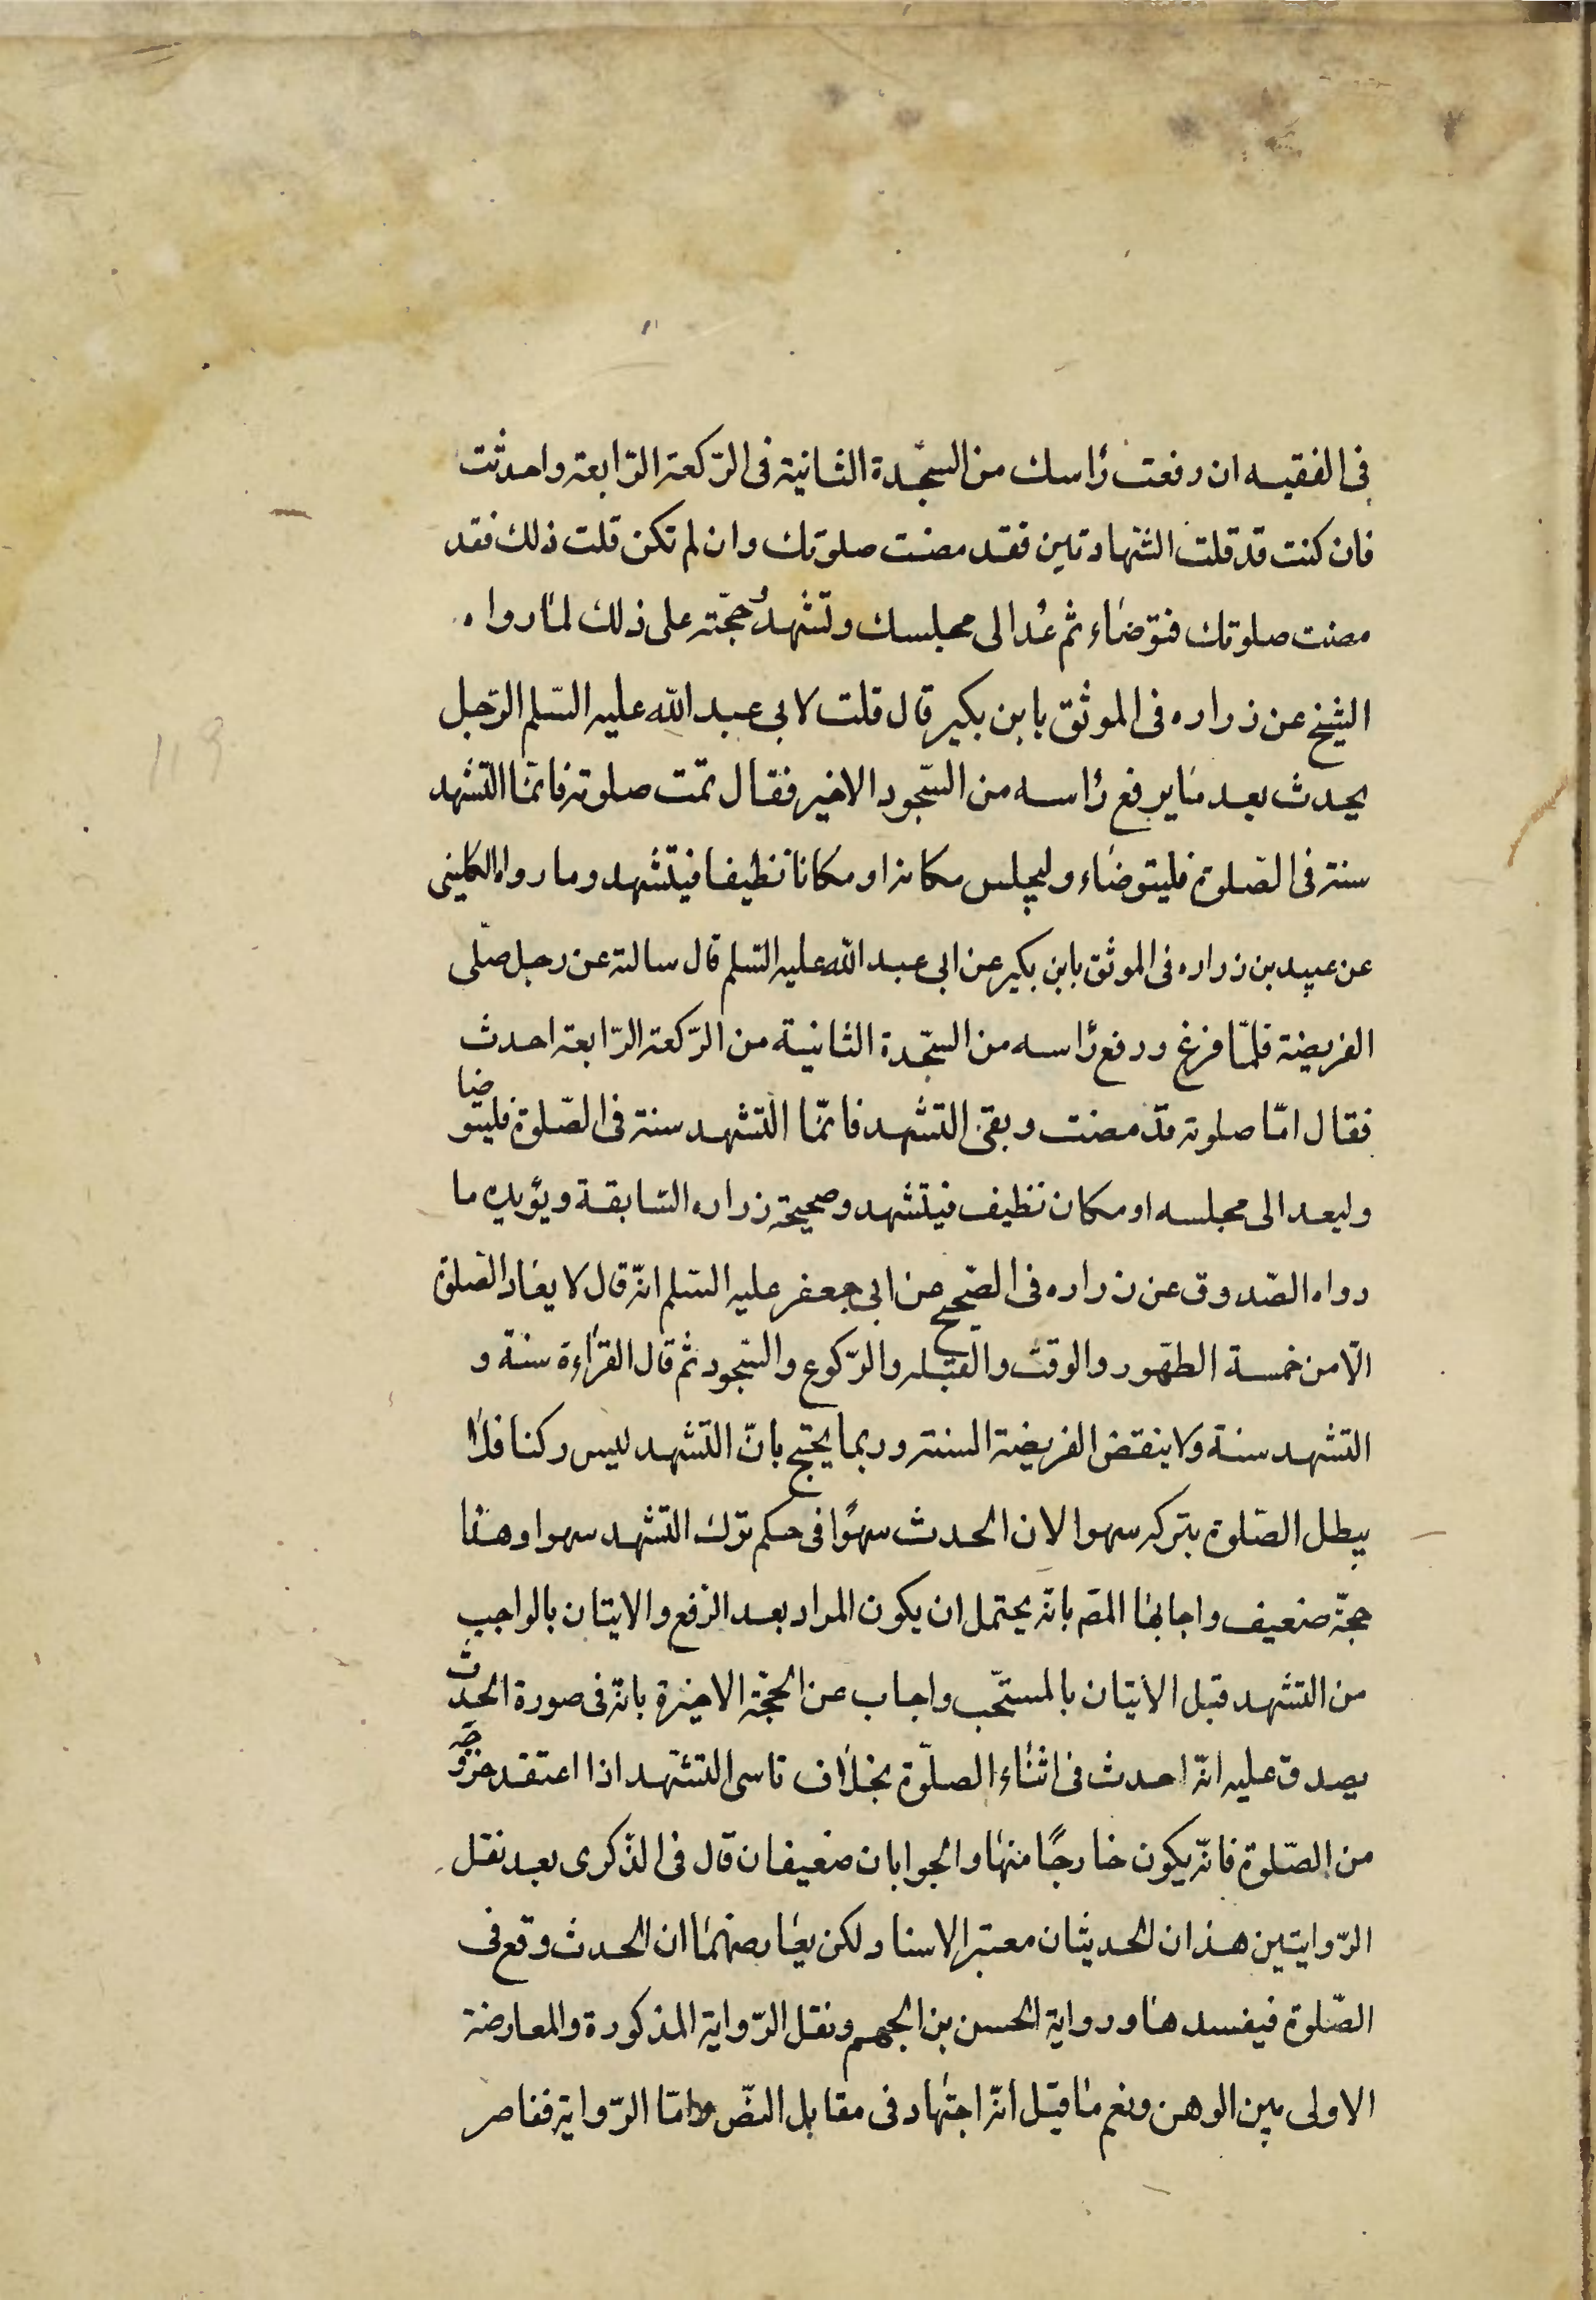 فى الفقيه ان رفعت رأسك من السجدة الثانية فى الركعة الرابعة واحدثت
فان كنت قد قلت الشهادتين فقد مضت صلوتك وان لم تكن قلت ذلك فقد
مضت صلوتك فتوضاء ثم عُد الى مجلسك وتشهد حجته على ذلك لما رواه
الشيخ عن زراره فى الموثق بابن بكير قال قلت لابى عبد الله عليه السلم الرجل
يحدث بعد ما يرفع رأسه من السجود الاخير فقال تمت صلوته فانما التشهد
سنة فى الصلوة فليتوضاء وليجلس مكانه او مكانا نظيفا فيتشهد وما رواه الكلينى
عن عبيد بن زراره فى الموثق بابن بكير عن ابى عبد الله عليه السلم قال سالته عن رجل صلى
الفريضة فلما فرغ ورفع رأسه من السجدة الثانية من الركعة الرابعة احدث
فقال امّا صلوته قد مضت وبقى التشهد فانما التشهد سنة فى الصلوة فليتوضا
وليعد الى مجلسه او مكان نظيف فيتشهد وصحيحة زراره السابقة ويؤيده ما
رواه الصدوق عن زراره فى الصحيح عن ابى جعفر عليه السلم انه قال لا يعاد الصلوة
الّا من خمسة الطهور والوقت والقبله والركوع والسجود ثم قال القراءة سنة و
التشهد سنة ولا ينقض الفريضة السنة وربما يحتج بانّ التشهد ليس ركنا فلا
يبطل الصلوة بتركه سهوا لان الحدث سهوًا فى حكم ترك التشهد سهوا وهذا
حجة ضعيف واجابها المصّ بانه يحتمل ان يكون المراد بعد الرفع والايتان بالواجب
من التشهد قبل الايتان بالمستحب واجاب عن الحجة الاخيرة بانه فى صورة الحدث
يصدق عليه انه احدث فى اثناء الصلوة بخلاف ناسى التشهد اذا اعتقد خروجه
من الصلوة فانه يكون خارجًا منها والجوابان ضعيفان قال فى الذكرى بعد نقل
الروايتين هذان الحديثان معتبر الاسناد ولكن يعارضهما ان الحدث وقع فى
الصلوة فيفسدها ورواية الحسن بن الجهم ونقل الرواية المذكورة والمعارضة
الاولى بين الوهن ونعم ما قيل انه اجتهاد فى مقابل النصّ وامّا الرواية فقاصر